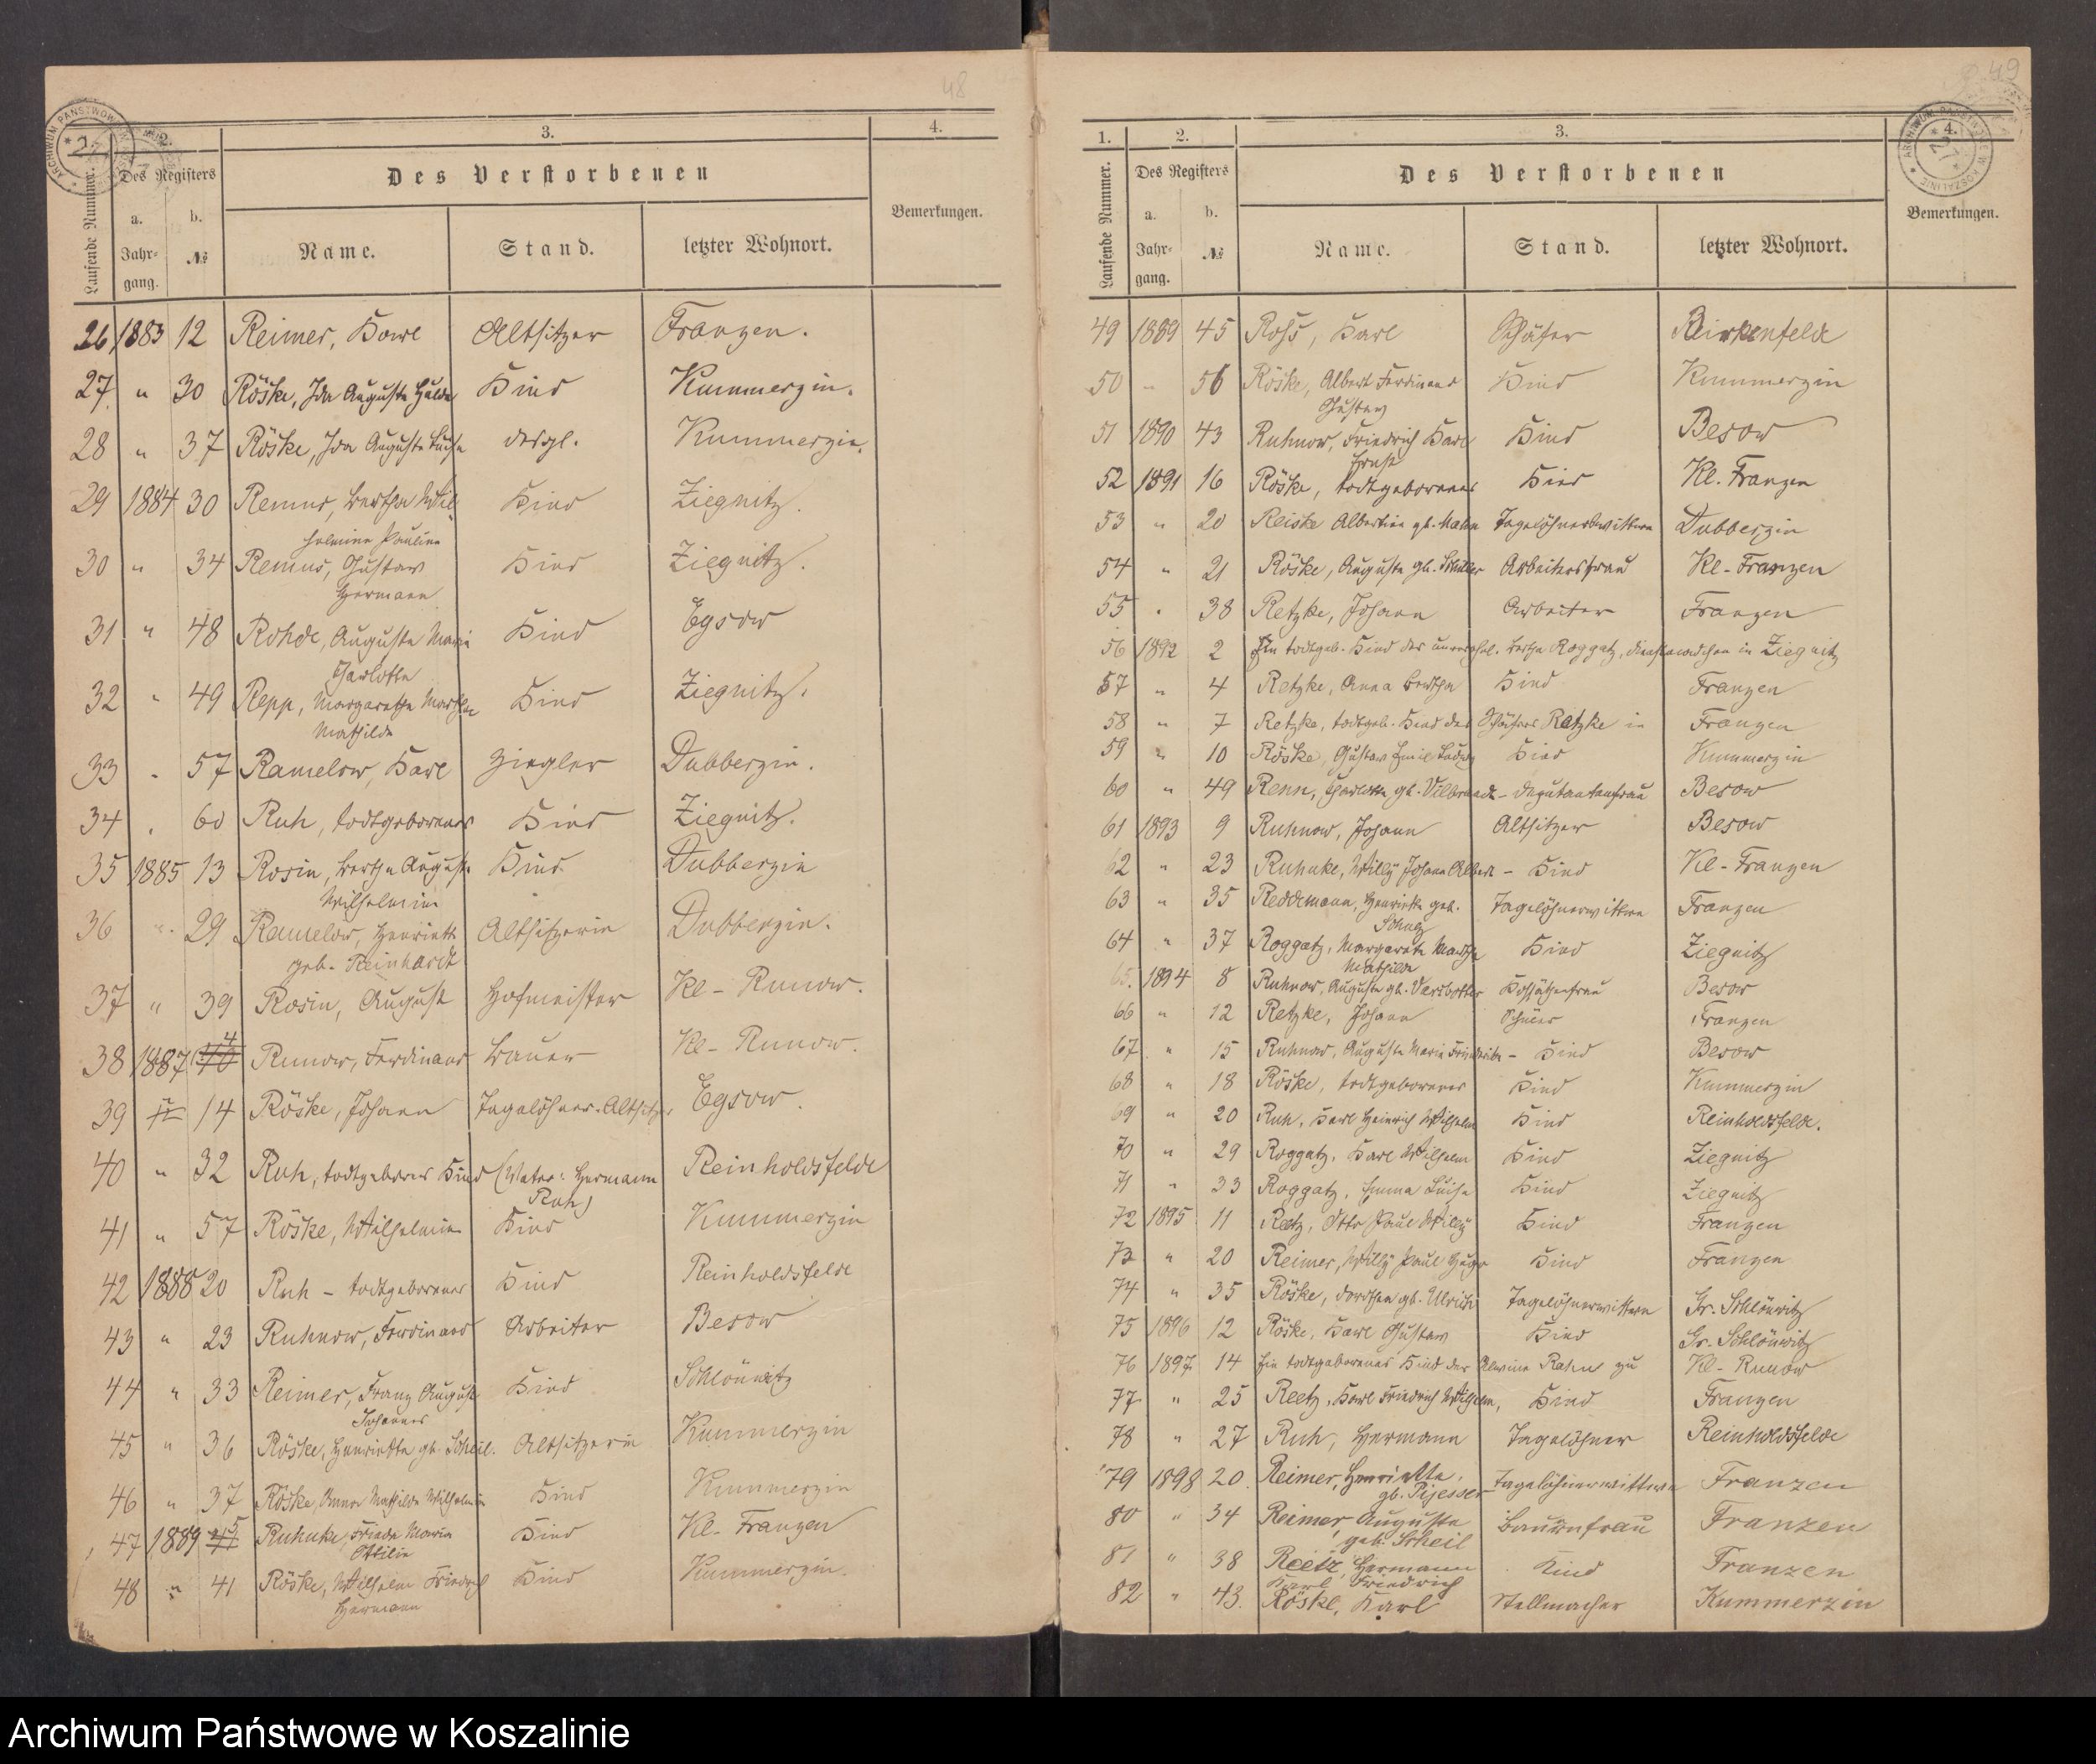 48
3.
4.
Laufende Nummer.
Des Registers
Des Verstorbenen
Bemerkungen.
a.
b.
Jahr-
gang.
№
Name.
Stand.
letzter Wohnort.
26 1883 12 Reimer, Karl Altsitzer Franzen.
27 " 30 Röske, Ida Auguste Hulda Kind Kummerzin.
28 " 37 Röske, Ida Auguste Luise desgl. Kummerzin.
29 1884 30 Remus, Bertha Wil-
helmine Pauline Kind Ziegnitz.
30 " 34 Remus, Gustav
Hermann Kind Ziegnitz.
31 " 48 Rohde, Auguste Marie
Charlotte Kind Egsow
32 " 49 Repp, Margarethe Martha
Mathilde Kind Ziegnitz.
33 " 57 Ramelow, Karl Ziegler Dubberzin.
34 " 60 Ruh, todtgeborenes Kind Ziegnitz.
35 1885 13 Rosin, Bertha Auguste
Wilhelmine Kind Dubberzin
36 " 29 Ramelow, Henriette
geb. Reinhardt Altsitzerin Dubberzin.
37 " 39 Rosin, August Hofmeister Kl-Runow.
38 1887 4 Runow, Ferdinand Bauer Kl-Runow.
39 " 14 Röske, Johann Tagelöhner-Altsitzer Egsow.
40 " 32 Ruh, todtgebores Kind (Vater: Hermann
Ruh) Reinholdsfelde
41 " 57 Röske, Wilhelmine Kind Kummerzin
42 1888 20 Ruh - todtgeborenes Kind Reinholdsfelde
43 " 23 Ruhnow, Ferdinand Arbeiter Besow
44 " 33 Reimer, Franz August
Johannes Kind Schlönwitz
45 " 36 Röske, Henriette gb. Scheil. Altsitzerin Kummerzin
46 " 37 Röske, Anna Mathilde Wilhelmine Kind Kummerzin
47 1889 5 Ruhnke, Frieda Maria
Ottilie Kind Kl. Franzen
48 " 41 Röske, Wilhelm Friedrich
Hermann Kind Kummerzin.
49
1.
2.
3.
4.
Laufende Nummer.
Des Registers
Des Verstorbenen
Bemerkungen.
a.
b.
Jahr-
gang.
№
Name.
Stand.
letzter Wohnort.
49 1889 45 Rohs, Karl Schäfer Birkenfeld
50 " 56 Röske, Albert Ferdinand
Gustav Kind Kummerzin
51 1890 43 Ruhnow, Friedrich Karl
Ernst Kind Besow
52 1891 16 Röske, todtgeborenes Kind Kl. Franzen
53 " 20 Reiske Albertine gb. Hahn Tagelöhnerwittwe Dubberzin
54 " 21 Röske, Auguste gb. Schüller Arbeitersfrau Kl-Franzen
55 " 38 Retzke, Johann Arbeiter Franzen
56 1892 2 Ein todtgeb. Kind der unverehel. Bertha Roggatz, Dienstmädchen in Ziegnitz
57 " 4 Retzke, Anna Bertha Kind Franzen
58 " 7 Retzke, todtgeb. Kind des Schäfers Retzke in Franzen
59 " 10 Röske, Gustav Emil Ludwig Kind Kummerzin
60 " 49 Renn, Charlotte gb. Vilbrandt - Deputantenfrau Besow
61 1893 9 Ruhnow, Johann Altsitzer Besow
62 " 23 Ruhnke, Willy Johann Albert - Kind Kl-Franzen
63 " 35 Reddemann, Henriette geb.
Schutz Tagelöhnerwittwe Franzen
64 " 37 Roggatz, Margarete Martha
Mathilde Kind Ziegnitz
65. 1894 8 Ruhnow, Auguste gb. Kossätenfrau Besow
66 " 12 Retzke, Johann Franzen
67 " 15 Ruhnow, Auguste Marie Friederike - Kind Besow
68 " 18 Röske, todtgeborenes Kind Kummerzin
69 " 20 Ruh, Karl Heinrich Wilhelm Kind Reinholdsfelde.
70 " 29 Roggatz, Karl Wilhelm Kind Ziegnitz
71 " 33 Roggatz, Emma Luise Kind Ziegnitz
72 1895 11 Reetz, Otto Paul Willy Kind Franzen
73 " 20 Reimer, Willy Paul Hugo Kind Franzen
74 " 35 Röske, Dorothea gb. Ulrich Tagelöhnerwittwe Gr. Schlönwitz
75 1896 12 Röske, Karl Gustav Kind Gr. Schlönwitz
76 1897 14 Ein todtgeborenes Kind der Alwine Rahn zu Kl-Runow
77 " 25 Reetz, Karl Friedrich Wilhelm, Kind Franzen
78 " 27 Ruh, Hermann Tagelöhner Reinholdsfelde
79 1898 20. Reimer, Henriette,
gb. Pijesser Tagelöhnerwittwe Franzen
80 " 34 Reimer, Auguste
geb. Scheil Bauernfrau Franzen
81 " 38 Reetz, Hermann
Karl Friedrich Kind Franzen
82 " 43. Röske, Karl Stellmacher Kummerzin
Archiwum Państwowe w Koszalinie